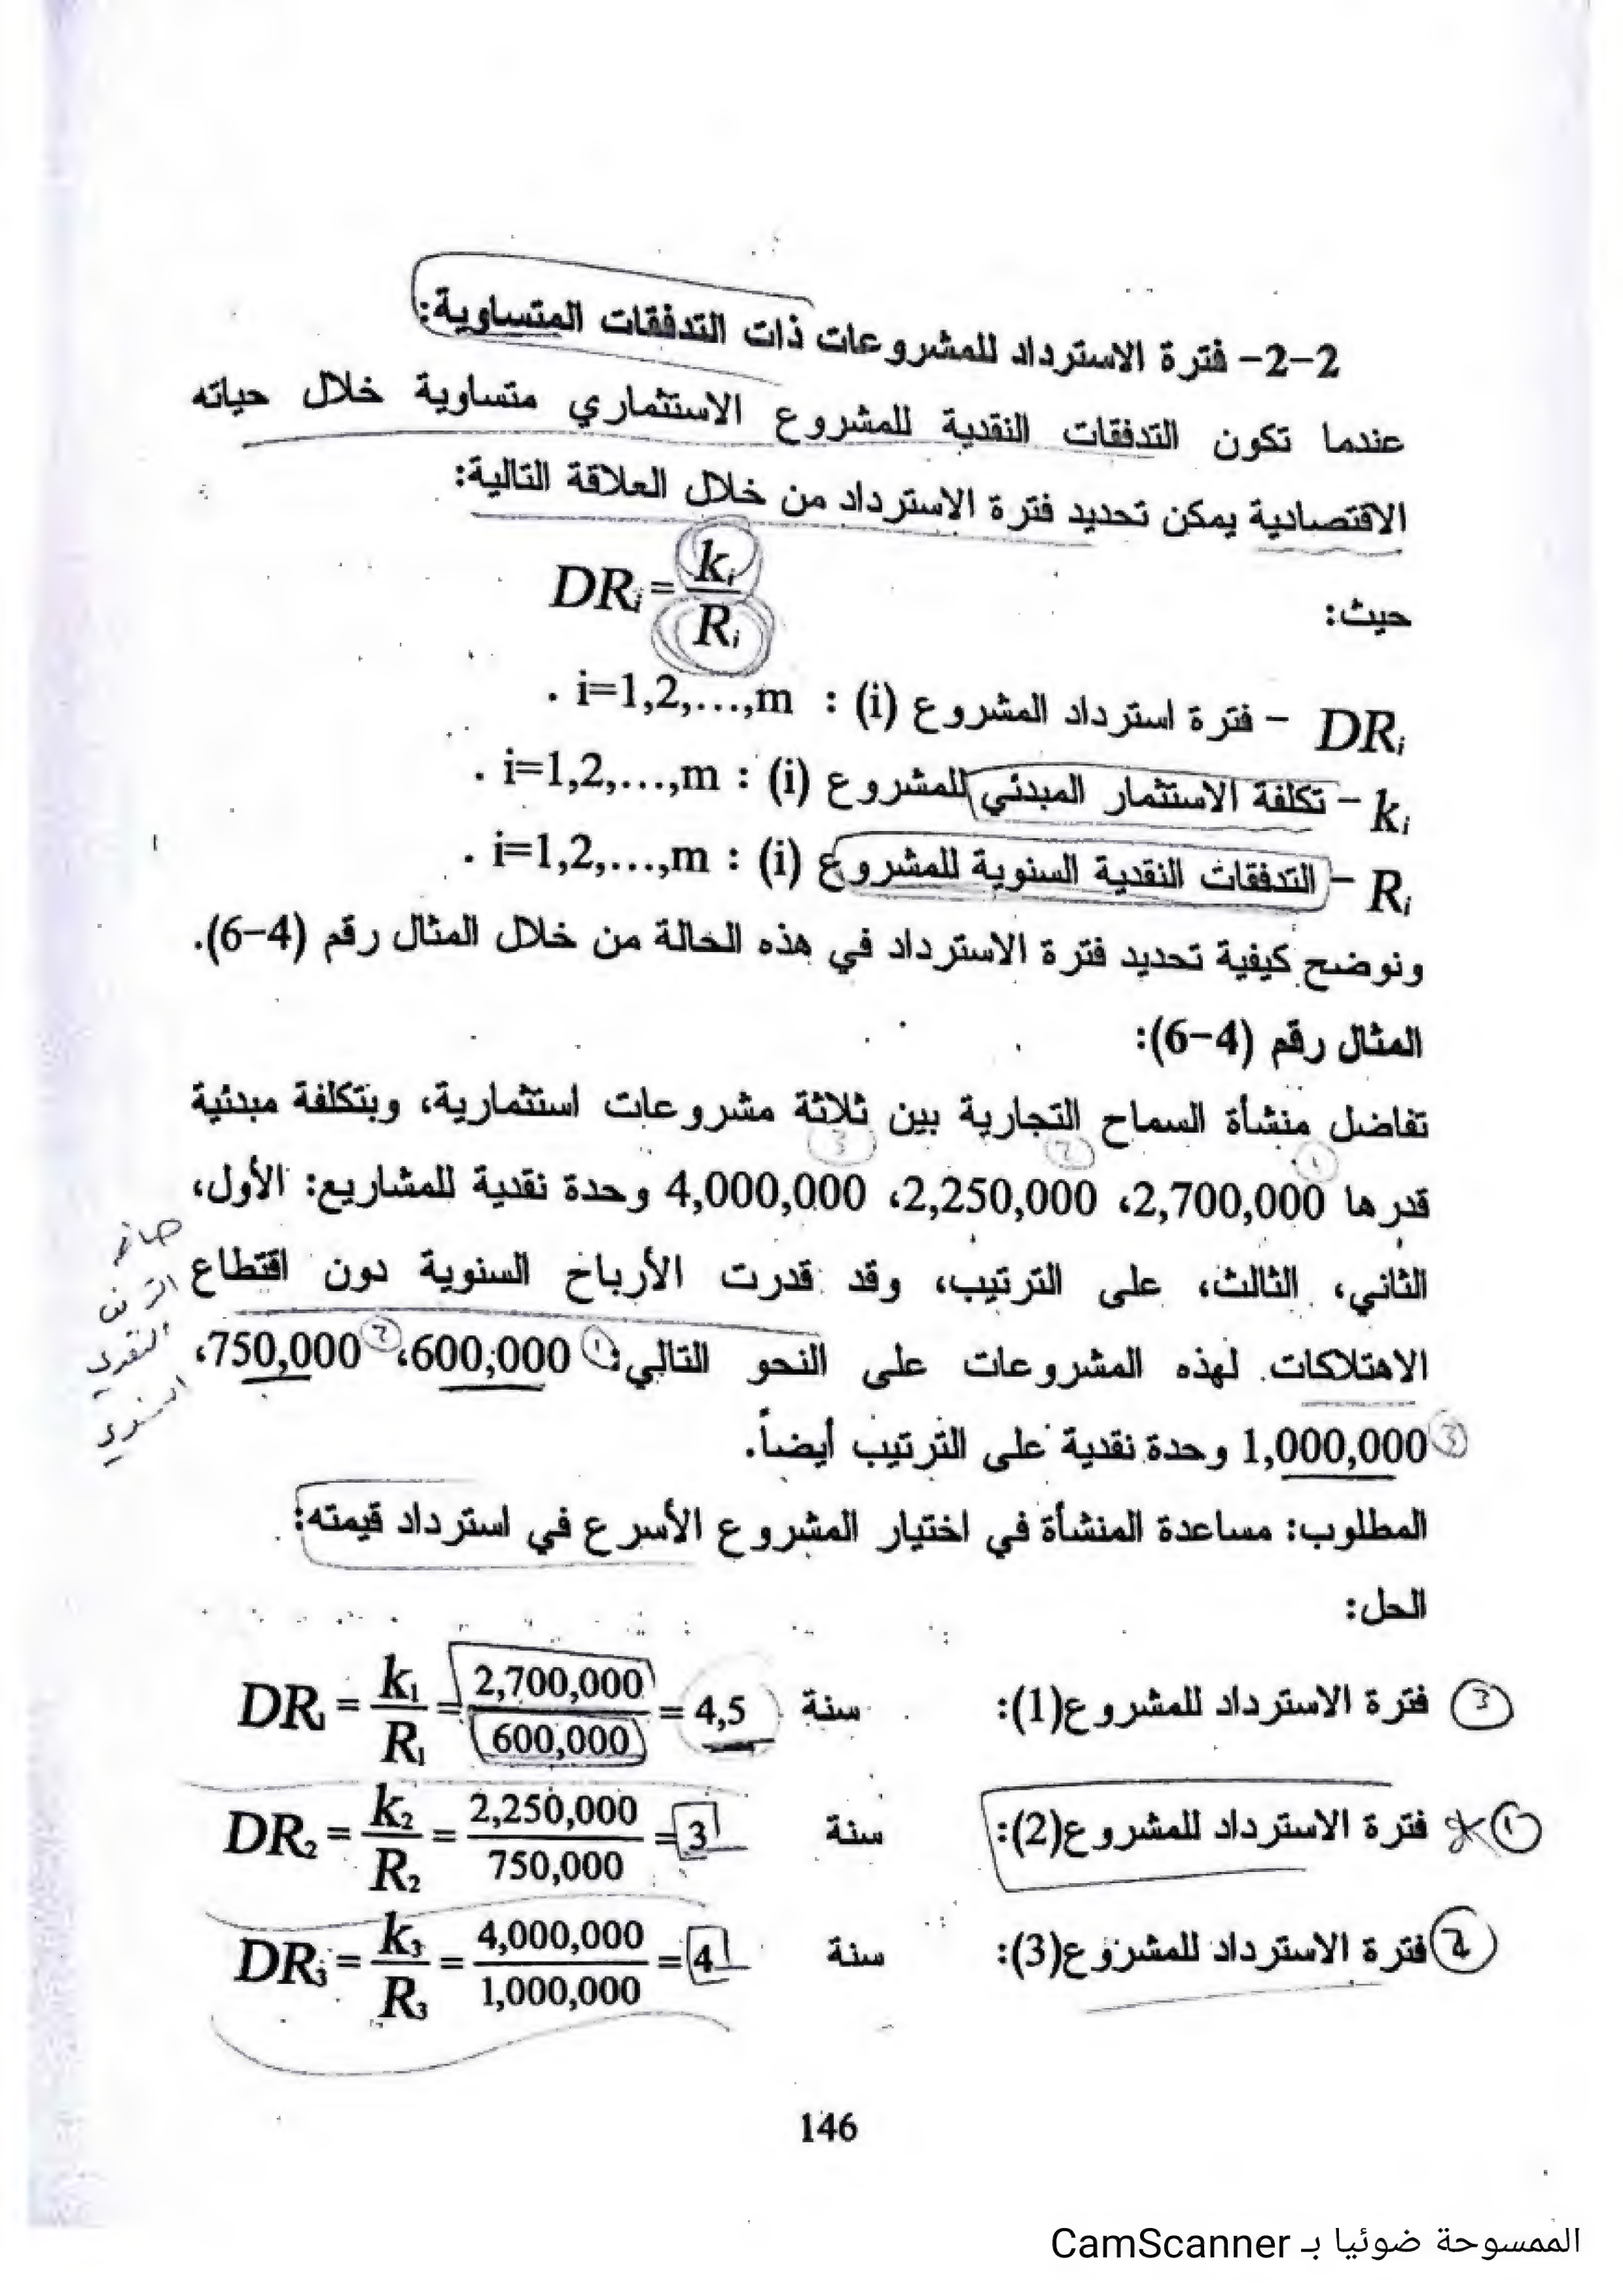 2-2- فترة الاسترداد للمشروعات ذات التدفقات المتساوية:
عندما تكون التدفقات النقدية للمشروع الاستثماري متساوية خلال حياته
الاقتصادية يمكن تحديد فترة الاسترداد من خلال العلاقة التالية:
DRi = ki / Ri
حيث:
DRi - فترة استرداد المشروع (i) : i=1,2,…,m .
ki - تكلفة الاستثمار المبدئي للمشروع (i) : i=1,2,…,m .
Ri - التدفقات النقدية السنوية للمشروع (i) : i=1,2,…,m .
ونوضح كيفية تحديد فترة الاسترداد في هذه الحالة من خلال المثال رقم (4-6).
المثال رقم (4-6):
تفاضل منشأة السماح التجارية بين ثلاثة مشروعات استثمارية، وبتكلفة مبدئية
1 2 3
قدرها 2,700,000، 2,250,000، 4,000,000 وحدة نقدية للمشاريع: الأول،
الثاني، الثالث، على الترتيب، وقد قدرت الأرباح السنوية دون اقتطاع
الاهتلاكات لهذه المشروعات على النحو التالي: 1 600,000، 2 750,000،
3 1,000,000 وحدة نقدية على الترتيب أيضاً.
النقدي
السنوي
المطلوب: مساعدة المنشأة في اختيار المشروع الأسرع في استرداد قيمته:
الحل:
3 فترة الاسترداد للمشروع(1): DR1 = k1 / R1 = 2,700,000 / 600,000 = 4,5 سنة
1 فترة الاسترداد للمشروع(2): DR2 = k2 / R2 = 2,250,000 / 750,000 = 3 سنة
2 فترة الاسترداد للمشروع(3): DR3 = k3 / R3 = 4,000,000 / 1,000,000 = 4 سنة
146
الممسوحة ضوئيا بـ CamScanner